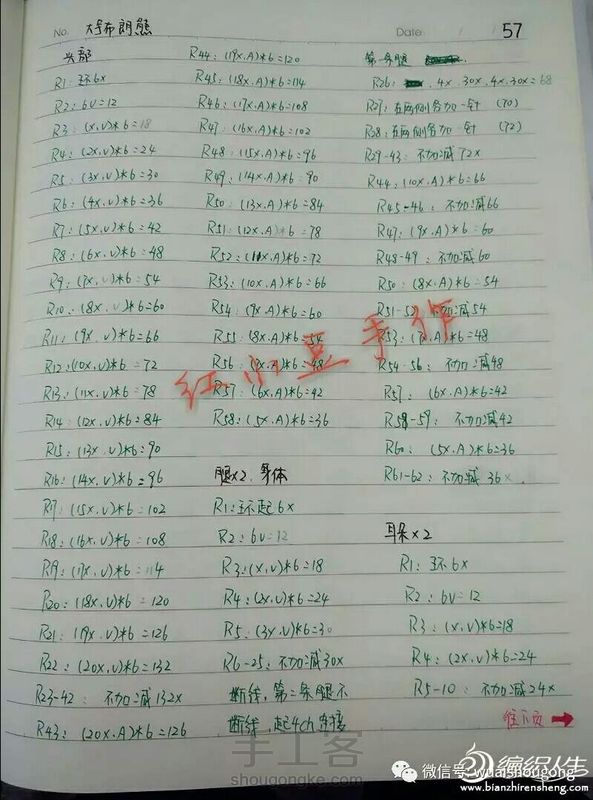 No. 大号布朗熊
Date
57
头部
R1: 环6X
R2: 6V=12
R3: (X,V)*6=18
R4: (2X,V)*6=24
R5: (3X,V)*6=30
R6: (4X,V)*6=36
R7: (5X,V)*6=42
R8: (6X,V)*6=48
R9: (7X,V)*6=54
R10: (8X,V)*6=60
R11: (9X,V)*6=66
R12: (10X,V)*6=72
R13: (11X,V)*6=78
R14: (12X,V)*6=84
R15: (13X,V)*6=90
R16: (14X,V)*6=96
R17: (15X,V)*6=102
R18: (16X,V)*6=108
R19: (17X,V)*6=114
R20: (18X,V)*6=120
R21: (19X,V)*6=126
R22: (20X,V)*6=132
R23-42: 不加减132X
R43: (20X,A)*6=126
R44: (19X,A)*6=120
R45: (18X,A)*6=114
R46: (17X,A)*6=108
R47: (16X,A)*6=102
R48: (15X,A)*6=96
R49: (14X,A)*6=90
R50: (13X,A)*6=84
R51: (12X,A)*6=78
R52: (11X,A)*6=72
R53: (10X,A)*6=66
R54: (9X,A)*6=60
R55: (8X,A)*6=54
R56: (7X,A)*6=48
R57: (6X,A)*6=42
R58: (5X,A)*6=36
腿X2,身体
R1: 环起6X
R2: 6V=12
R3: (X,V)*6=18
R4: (2X,V)*6=24
R5: (3X,V)*6=30
R6-25: 不加减30X
断线,第二条腿不
断线,起4ch连接
第一条腿
R26: 4X,30X,4X,30X=68
R27: 在两侧各加一针 (70)
R28: 在两侧各加一针 (72)
R29-43: 不加减72X
R44: (10X,A)*6=66
R45-46: 不加减66
R47: (9X,A)*6=60
R48-49: 不加减60
R50: (8X,A)*6=54
R51-52: 不加减54
R53: (7X,A)*6=48
R54-56: 不加减48
R57: (6X,A)*6=42
R58-59: 不加减42
R60: (5X,A)*6=36
R61-62: 不加减36X
耳朵X2
R1: 环6X
R2: 6V=12
R3: (X,V)*6=18
R4: (2X,V)*6=24
R5-10: 不加减24X
往下页
红小豆手作
手工客
shougongke.com
微信号: wuaishougong
编织人生
www.bianzhirensheng.com